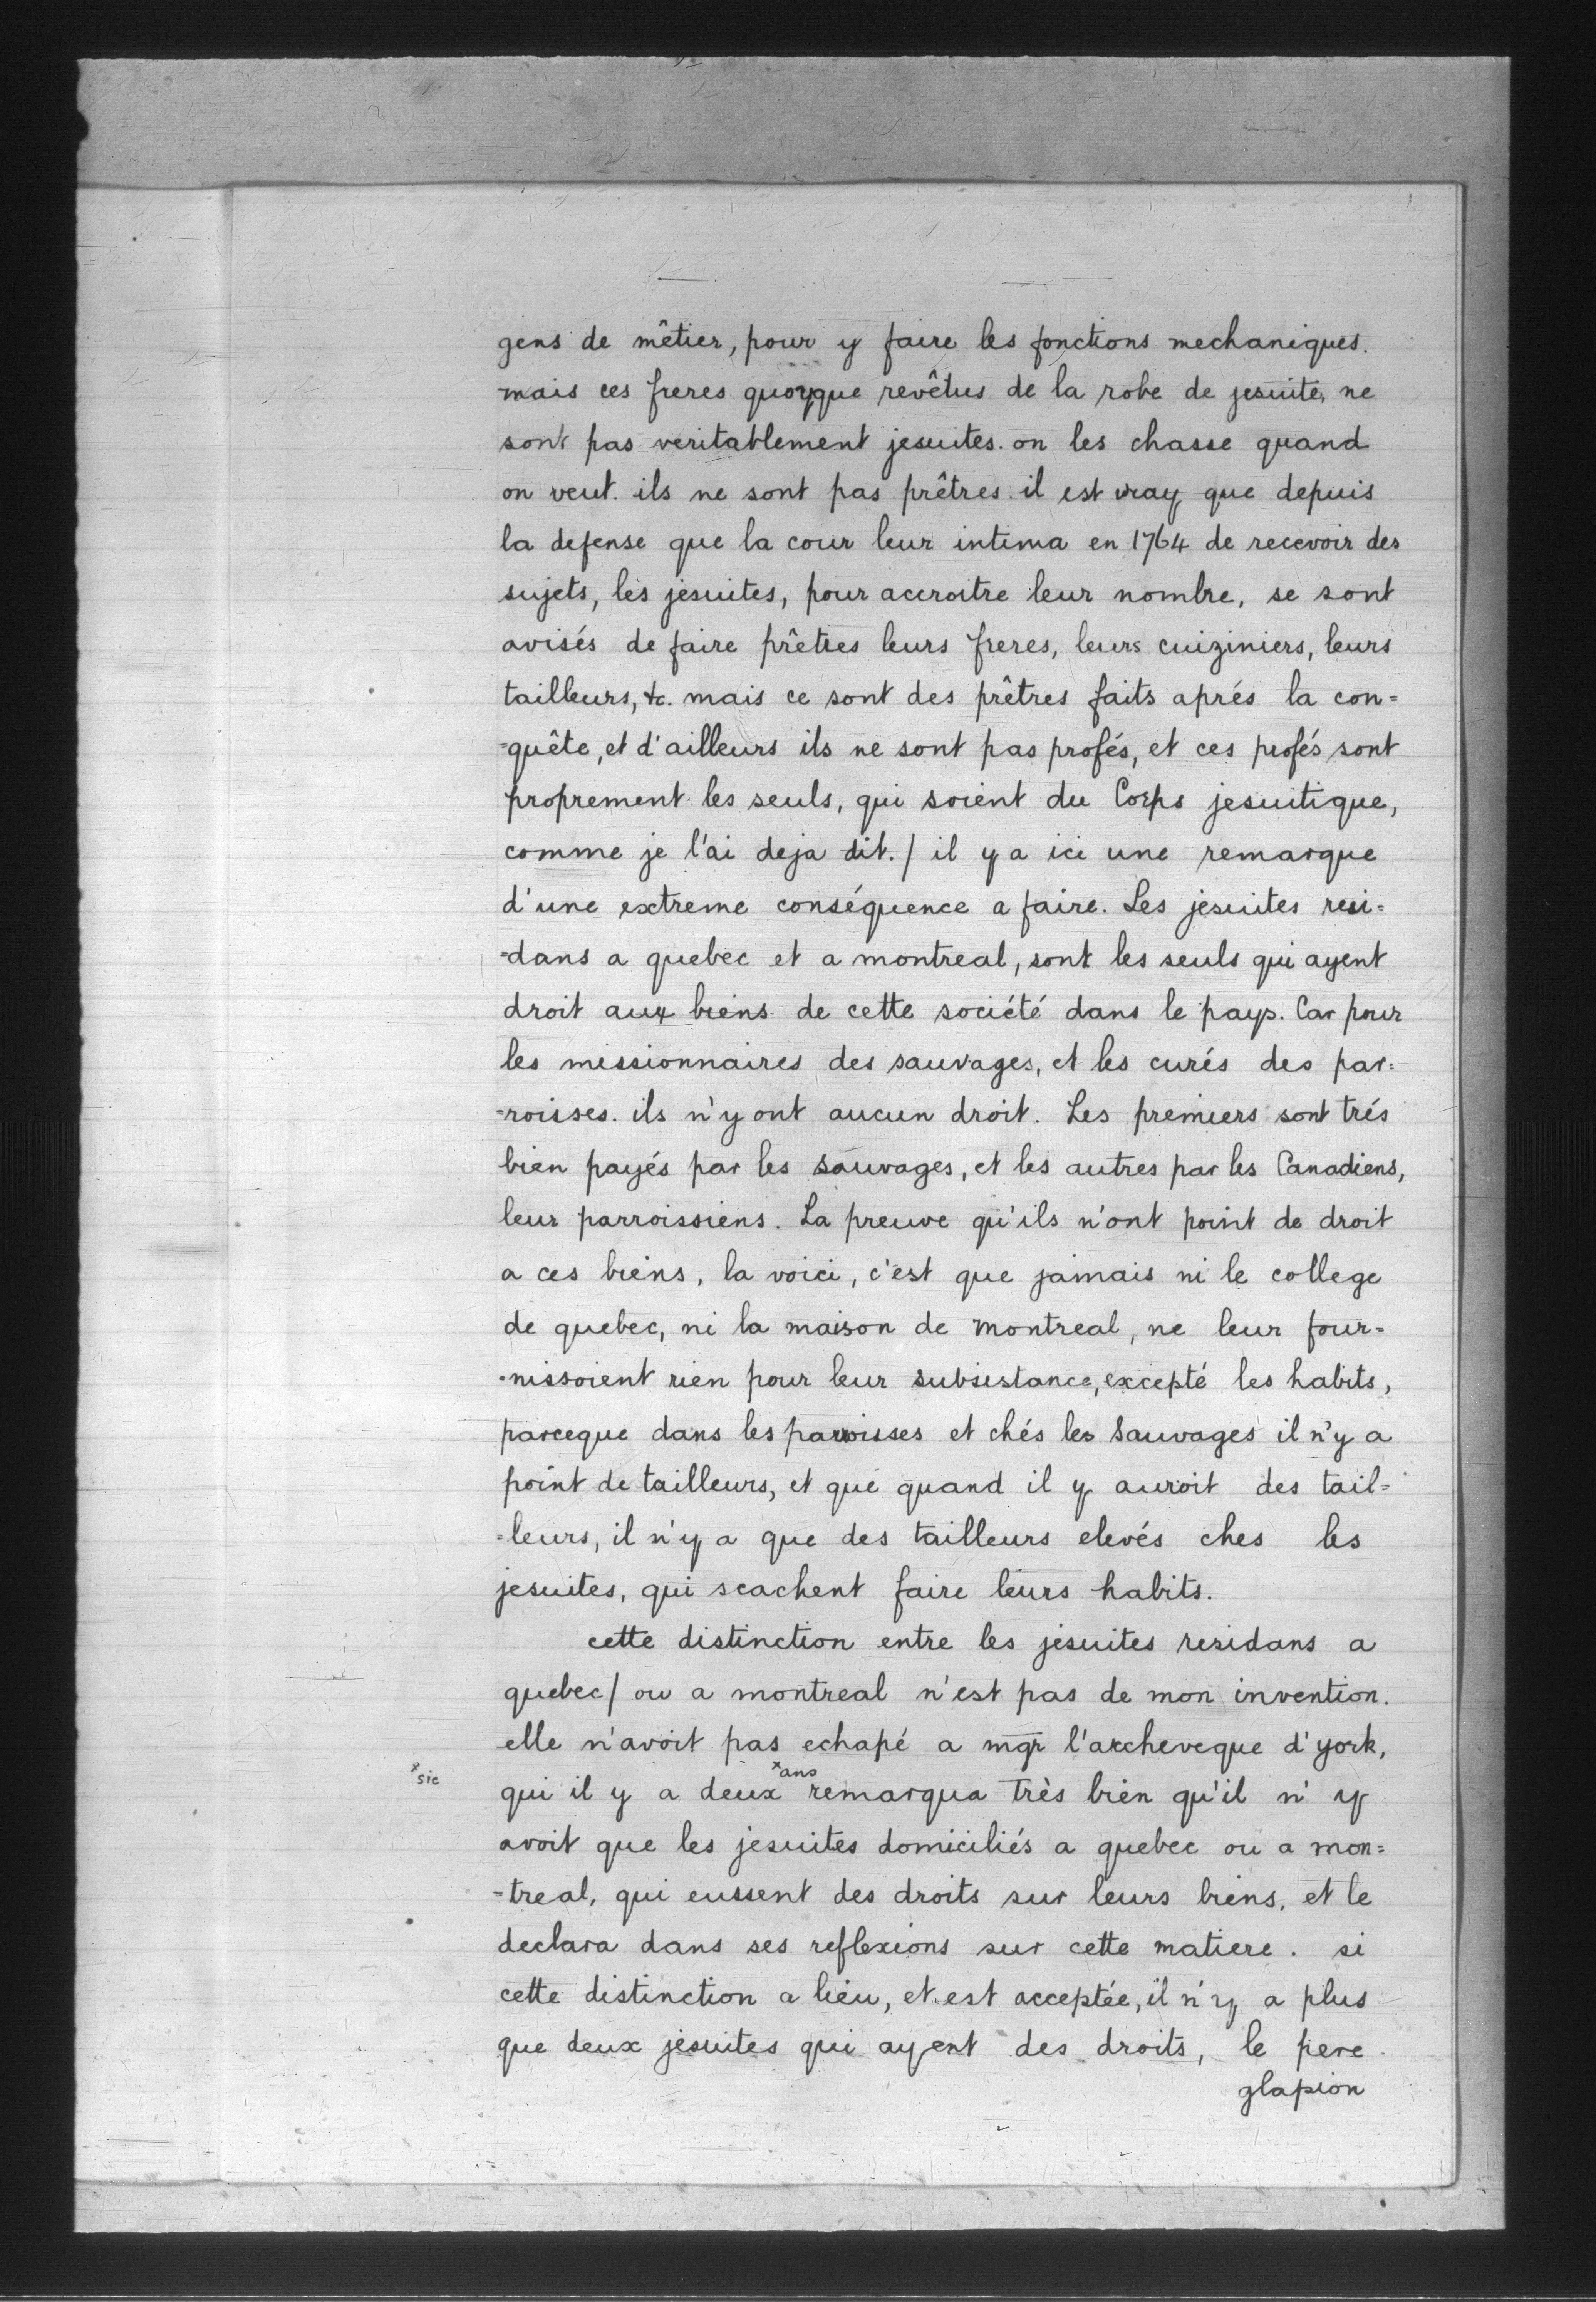 gens de mêtier, pour y faire les fonctions mechaniques.
mais ces freres quoyque revêtus de la robe de jesuite, ne
sont pas veritablement jesuites. on les chasse quand
on veut. ils ne sont pas prêtres. il est vray que depuis
la defense que la cour leur intima en 1764 de recevoir des
sujets, les jesuites, pour accroitre leur nombre, se sont
avisés de faire prêtres leurs freres, leurs cuiziniers, leurs
tailleurs, &c. mais ce sont des prêtres faits aprés la con=
=quête, et d'ailleurs ils ne sont pas profés, et ces profés sont
proprement les seuls, qui soient du Corps jesuitique,
comme je l'ai deja dit. / il y a ici une remarque
d'une extreme conséquence a faire. Les jesuites resi=
=dans a quebec et a montreal, sont les seuls qui ayent
droit aux biens de cette société dans le pays. Car pour
les missionnaires des sauvages, et les curés des par=
=roisses. ils n'y ont aucun droit. Les premiers sont trés
bien payés par les sauvages, et les autres par les Canadiens,
leur parroissiens. La preuve qu'ils n'ont point de droit
a ces biens, la voici, c'est que jamais ni le college
de quebec, ni la maison de montreal, ne leur four=
=nissoient rien pour leur subsistance, excepté les habits,
parceque dans les parroisses et chés les Sauvages il n'y a
point de tailleurs, et que quand il y auroit des tail=
=leurs, il n'y a que des tailleurs elevés ches les
jesuites, qui scachent faire leurs habits.
cette distinction entre les jesuites residans a
quebec / ou a montreal n'est pas de mon invention.
elle n'avoit pas echapé a mgr l'archeveque d'york,
x sic
x ans
qui il y a deux remarqua très bien qu'il n'y
avoit que les jesuites domiciliés a quebec ou a mon=
=treal, qui eussent des droits sur leurs biens, et le
declara dans ses reflexions sur cette matiere. si
cette distinction a lieu, et est acceptée, il n'y a plus
que deux jesuites qui ayent des droits, le pere
glapion